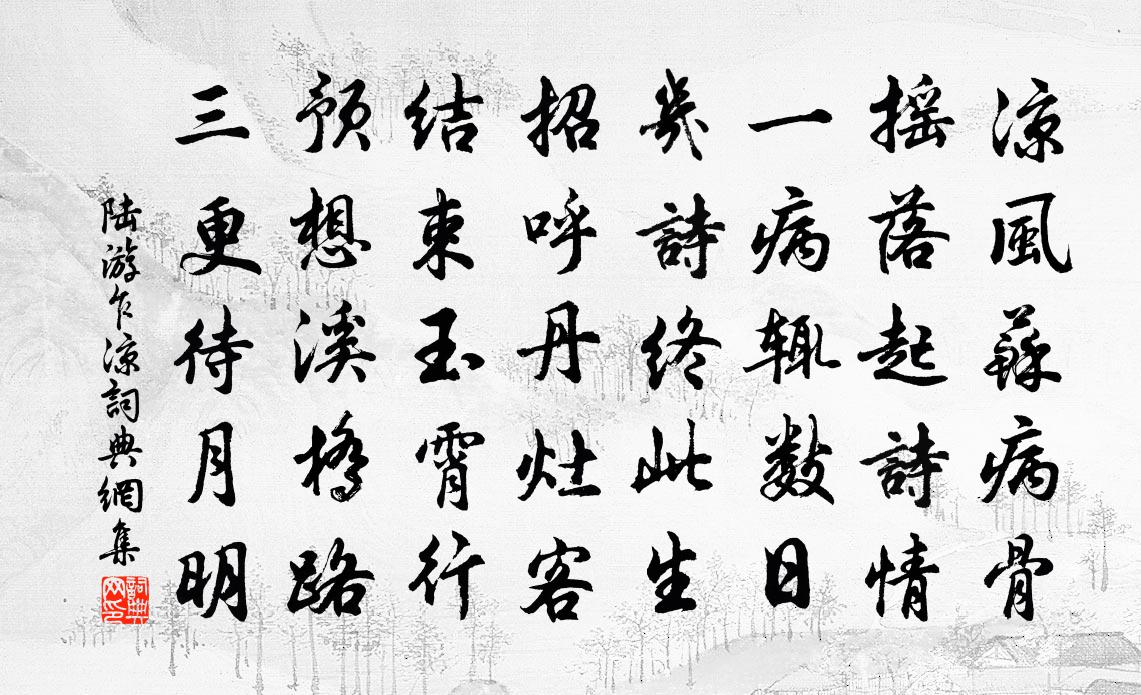 涼風蘇病骨
摇落起詩情
一病輒數日
幾詩終此生
招呼丹灶客
結束玉霄行
预想溪橋路
三更待月明
陆游乍涼詞典網集
詞典網印